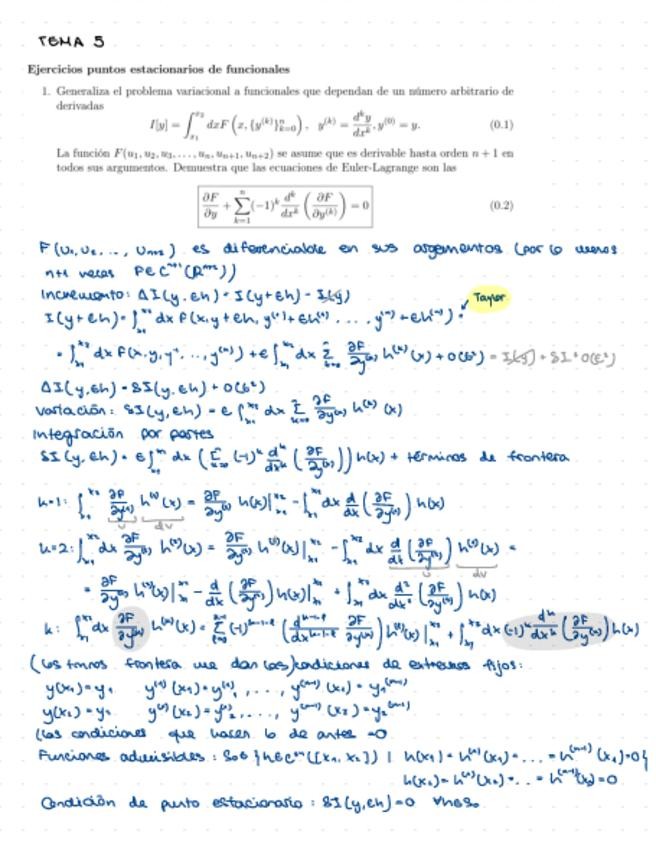 TEMA 5
Ejercicios puntos estacionarios de funcionales
1. Generaliza el problema variacional a funcionales que dependan de un número arbitrario de
derivadas
I[y] = ∫_{x₁}^{x₂} dxF (x, {y^{(k)}}_{k=0}^{n}), y^{(k)} = d^k y/dx^k, y^{(0)} = y. (0.1)
La función F(u₁, u₂, u₃, . . . , uₙ, uₙ₊₁, uₙ₊₂) se asume que es derivable hasta orden n + 1 en
todos sus argumentos. Demuestra que las ecuaciones de Euler-Lagrange son las
∂F/∂y + ∑_{k=1}^{n} (-1)^k d^k/dx^k (∂F/∂y^{(k)}) = 0 (0.2)
F(u₁, u₂, ..., uₙ₊₂) es diferenciable en sus argumentos (por lo menos
n+1 veces F∈C^{n+1}(R^{n+2}))
Incremento: ΔI(y, εh) = I(y+εh) - I(y)
Taylor
I(y+εh) = ∫_{x₁}^{x₂} dx F(x, y+εh, y^{(1)}+εh^{(1)}, ..., y^{(n)}+εh^{(n)}) =
= ∫_{x₁}^{x₂} dx F(x, y, y', ..., y^{(n)}) + ε ∫_{x₁}^{x₂} dx ∑_{k=0}^{n} ∂F/∂y^{(k)} h^{(k)}(x) + O(ε²) = I(y) + δI + O(ε²)
ΔI(y, εh) = δI(y, εh) + O(ε²)
Variación: δI(y, εh) = ε ∫_{x₁}^{x₂} dx ∑_{k=0}^{n} ∂F/∂y^{(k)} h^{(k)}(x)
Integración por partes
δI(y, εh) = ε ∫_{x₁}^{x₂} dx (∑_{k=0}^{n} (-1)^k d^k/dx^k (∂F/∂y^{(k)})) h(x) + términos de frontera
k=1: ∫_{x₁}^{x₂} ∂F/∂y^{(1)} h^{(1)}(x) = ∂F/∂y^{(1)} h(x)|_{x₁}^{x₂} - ∫_{x₁}^{x₂} dx d/dx (∂F/∂y^{(1)}) h(x)
u dv
k=2: ∫_{x₁}^{x₂} dx ∂F/∂y^{(2)} h^{(2)}(x) = ∂F/∂y^{(2)} h^{(1)}(x)|_{x₁}^{x₂} - ∫_{x₁}^{x₂} dx d/dx (∂F/∂y^{(2)}) h^{(1)}(x) =
u dv
= ∂F/∂y^{(2)} h^{(1)}(x)|_{x₁}^{x₂} - d/dx (∂F/∂y^{(2)}) h(x)|_{x₁}^{x₂} + ∫_{x₁}^{x₂} dx d²/dx² (∂F/∂y^{(2)}) h(x)
k: ∫_{x₁}^{x₂} dx ∂F/∂y^{(k)} h^{(k)}(x) = ∑ (-1)^{k-1-l} (d^{k-1-l}/dx^{k-1-l} ∂F/∂y^{(k)}) h^{(l)}(x)|_{x₁}^{x₂} + ∫_{x₁}^{x₂} dx (-1)^k d^k/dx^k (∂F/∂y^{(k)}) h(x)
(Los tmnos frontera me dan las) condiciones de extremos fijos:
y(x₁)=y₁ y^{(1)}(x₁)=y₁^{(1)}, ..., y^{(n-1)}(x₁)=y₁^{(n-1)}
y(x₂)=y₂ y^{(1)}(x₂)=y₂^{(1)}, ..., y^{(n-1)}(x₂)=y₂^{(n-1)}
(las condiciones que hacen lo de antes =0
Funciones admisibles: S₀ = {h∈C^{2n}([x₁, x₂]) | h(x₁)=h^{(1)}(x₁)=...=h^{(n-1)}(x₁)=0}
h(x₂)=h^{(1)}(x₂)=...=h^{(n-1)}(x₂)=0
Condición de punto estacionario: δI(y, εh)=0 ∀h∈S₀